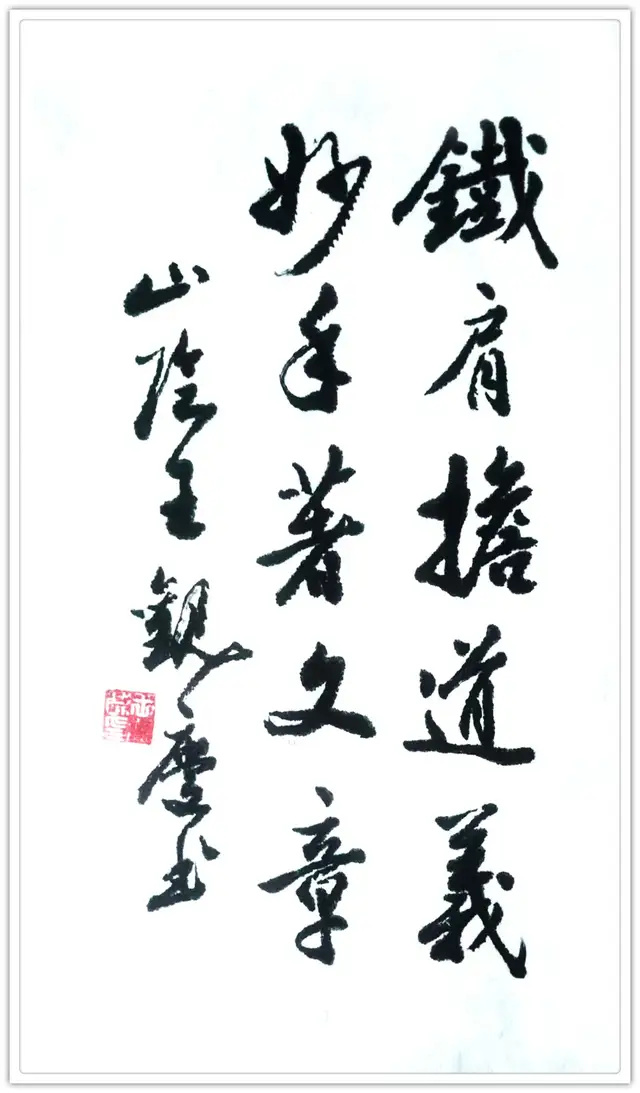 鐵肩擔道義
妙手著文章
山陰王觀慶书